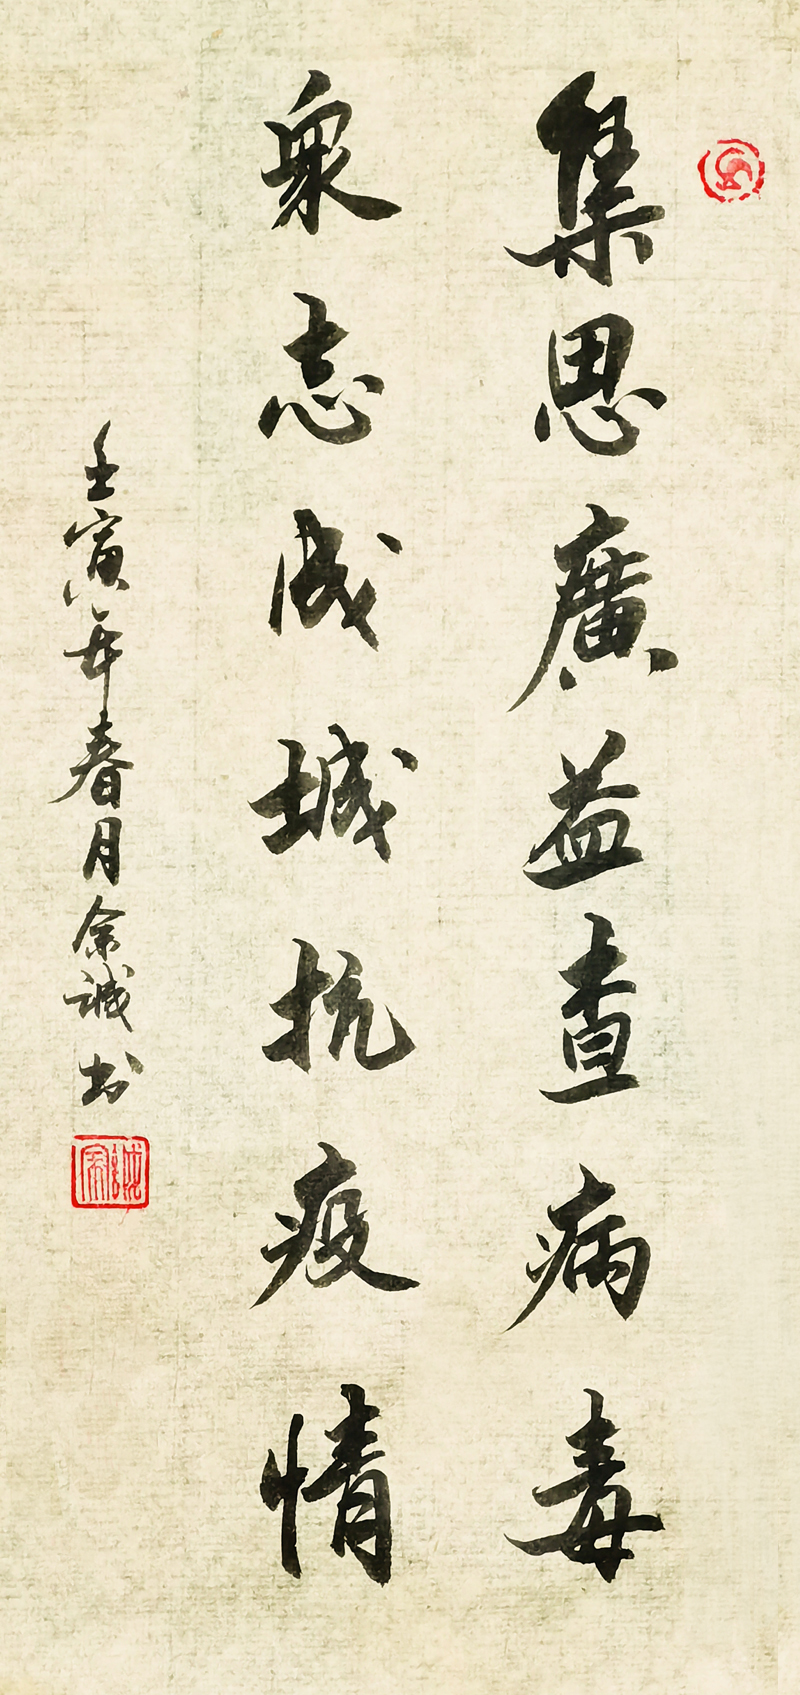 集思廣益查病毒
衆志成城抗疫情
壬寅年春月余誠书